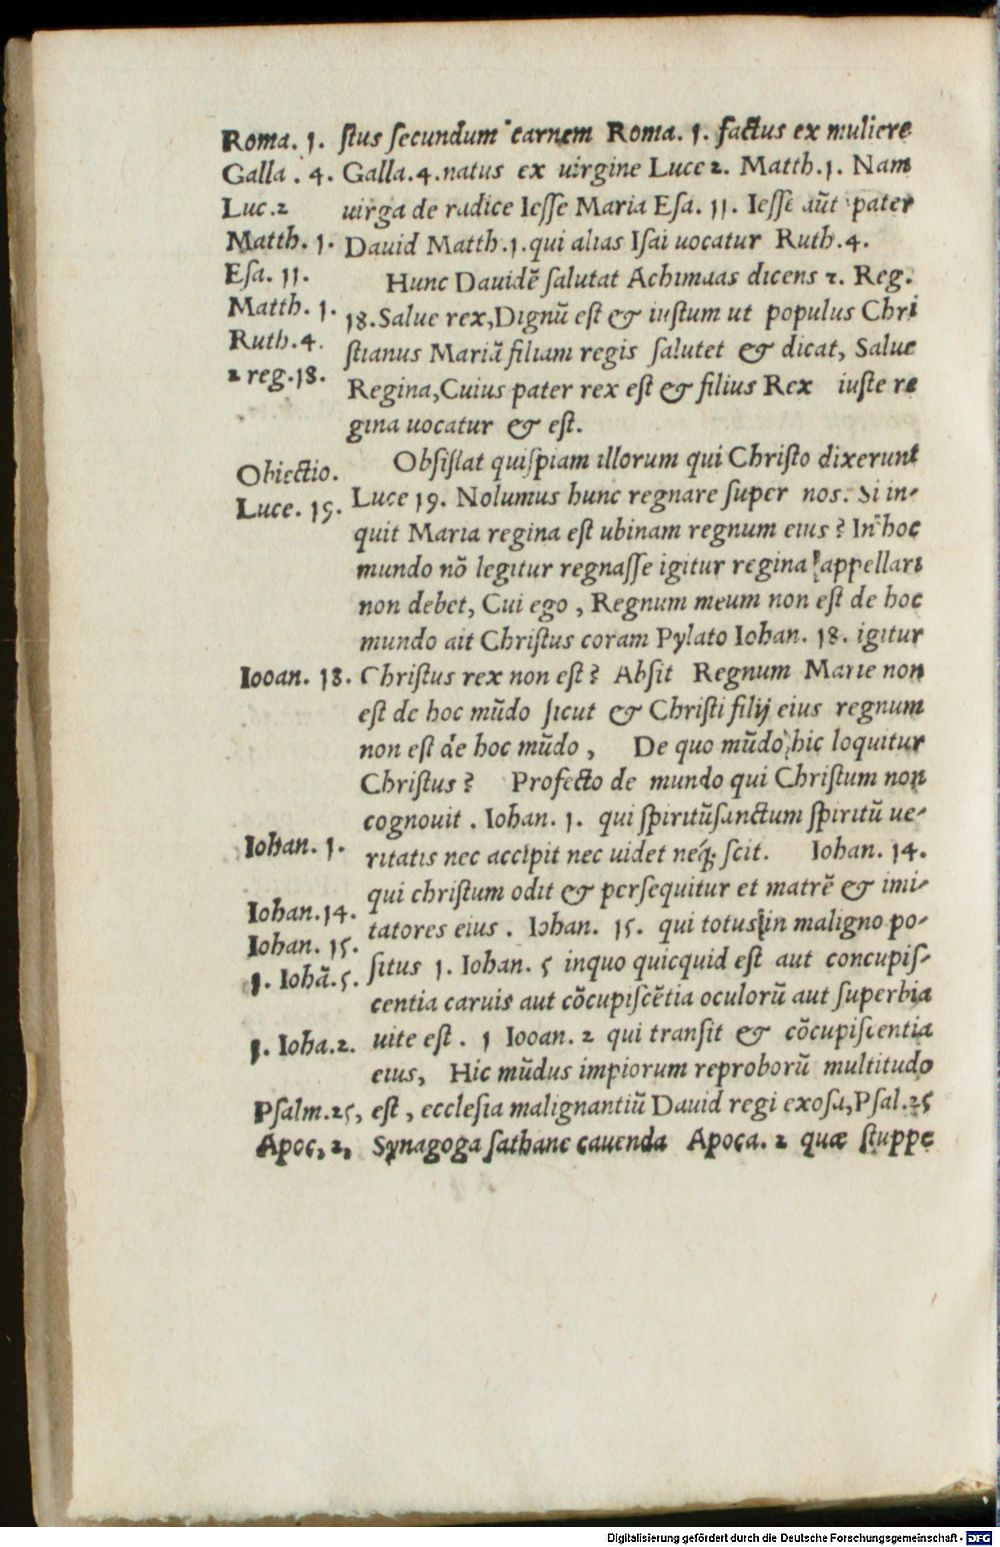 Roma. 1. stus secundum carnem Roma. 1. factus ex muliere
Galla. 4. Galla.4.natus ex uirgine Luce 2. Matth.1. Nam
Luc.2 uirga de radice Iesse Maria Esa. 11. Iesse aũt pater
Matth. 1. Dauid Matth.1.qui alias Isai uocatur Ruth.4.
Esa. 11. Hunc Dauidẽ salutat Achimaas dicens 2. Reg.
Matth. 1. 18.Salue rex,Dignũ est & iustum ut populus Chri
Ruth.4. stianus Mariã filiam regis salutet & dicat, Salue
2 reg.18. Regina,Cuius pater rex est & filius Rex iuste re
gina uocatur & est.
Obiectio. Obsistat quispiam illorum qui Christo dixerunt
Luce. 19. Luce 19. Nolumus hunc regnare super nos. Si in-
quit Maria regina est ubinam regnum eius? In hoc
mundo nõ legitur regnasse igitur regina appellari
non debet, Cui ego, Regnum meum non est de hoc
mundo ait Christus coram Pylato Iohan. 18. igitur
Iooan. 18. Christus rex non est? Absit Regnum Marie non
est de hoc mũdo sicut & Christi filij eius regnum
non est de hoc mũdo, De quo mũdo hic loquitur
Christus? Profecto de mundo qui Christum non
cognouit. Iohan. 1. qui spiritũsanctum spiritũ ue-
Iohan. 1. ritatis nec accipit nec uidet neq; scit. Iohan. 14.
qui christum odit & persequitur et matrẽ & imi-
Iohan.14. tatores eius. Iohan. 15. qui totus in maligno po-
Iohan. 15.
1. Iohã.5. situs 1. Iohan. 5 inquo quicquid est aut concupis-
centia caruis aut cõcupiscẽtia oculorũ aut superbia
1. Ioha.2. uite est. 1 Iooan. 2 qui transit & cõcupiscentia
eius, Hic mũdus impiorum reproborũ multitudo
Psalm.25, est, ecclesia malignantiũ Dauid regi exosa,Psal.25
Apoc, 2, Synagoga sathane cauenda Apoca. 2 quæ stuppe
Digitalisierung gefördert durch die Deutsche Forschungsgemeinschaft - DFG